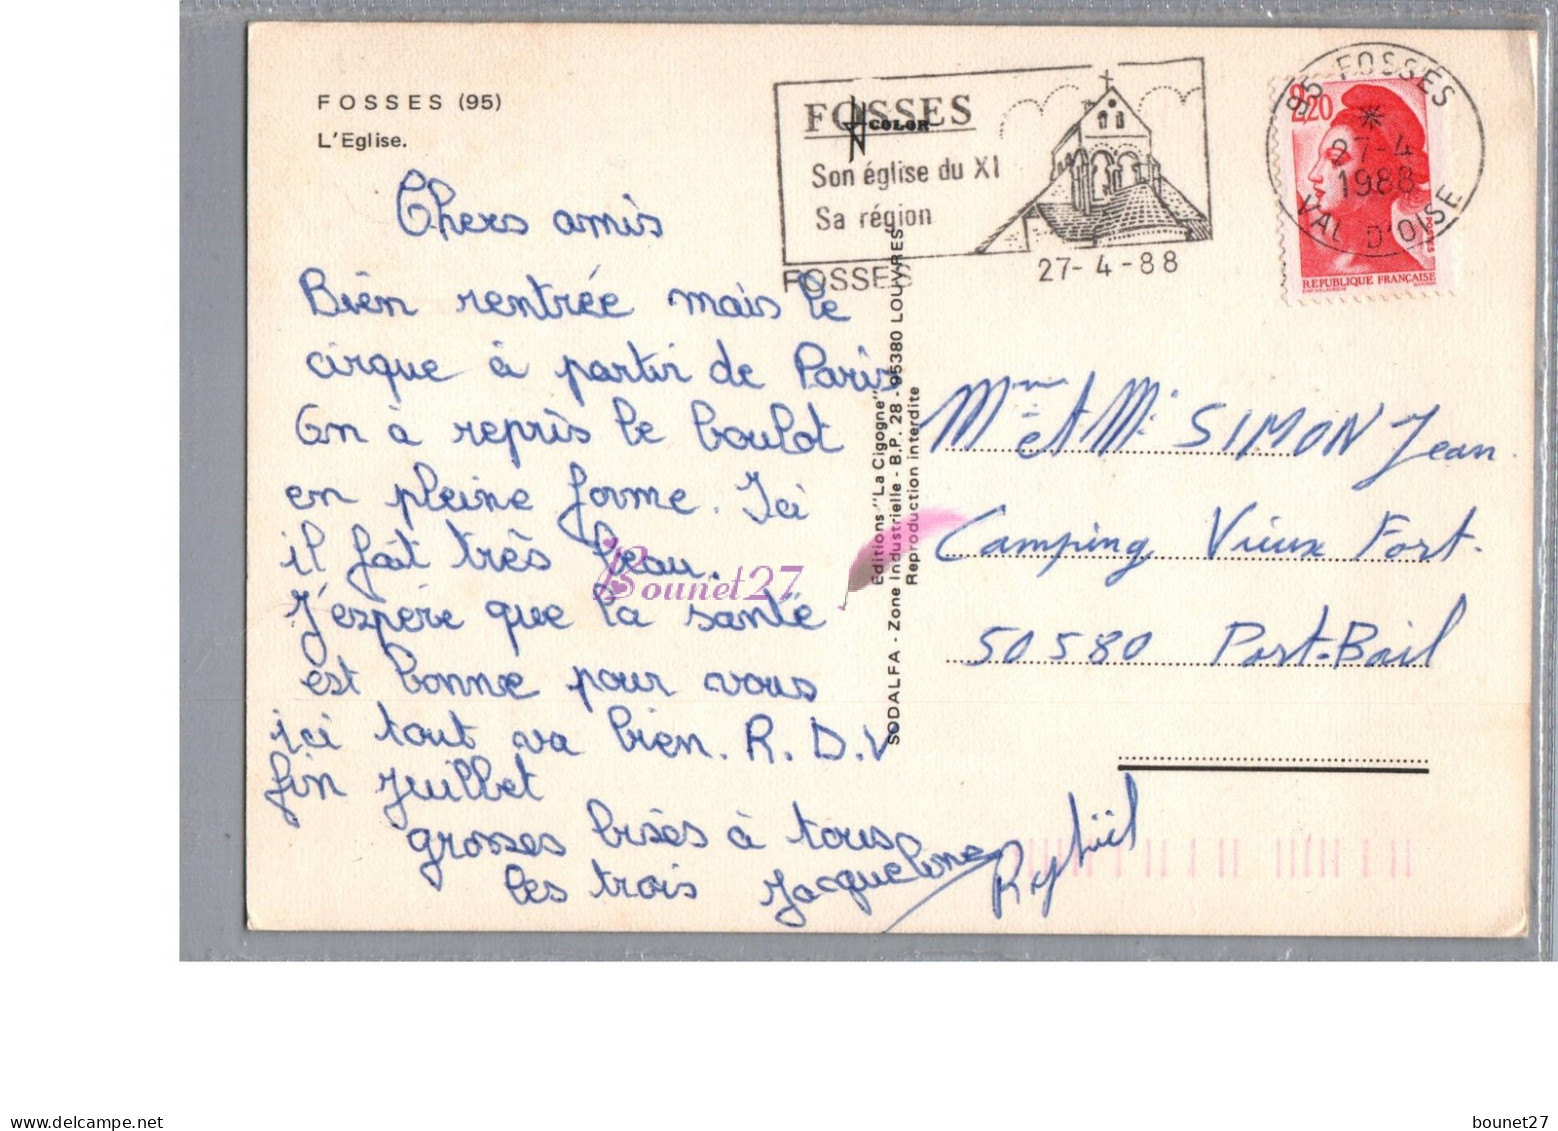 FOSSES (95)
L'Eglise.
FOSSES
COLOR
Son église du XI
Sa région
FOSSES
27-4-88
95 FOSSES
27-4
1988
VAL D'OISE
2,20
POSTES
REPUBLIQUE FRANÇAISE
Chers amis
Bien rentrée mais le
cirque à partir de Paris
On à repris le boulot
en pleine forme. Ici
il fait très beau.
J'espère que la santé
est bonne pour vous
ici tout va bien. R.D.V
fin Juillet
grosses bises à tous
les trois Jacqueline
Editions "La Cigogne"
SODALFA - Zone Industrielle - B.P. 28 - 95380 LOUVRES
Reproduction interdite
Mme et Mr SIMON Jean
Camping Vieux Fort.
50580 Port-Bail
Bounet27
delcampe.net
bounet27